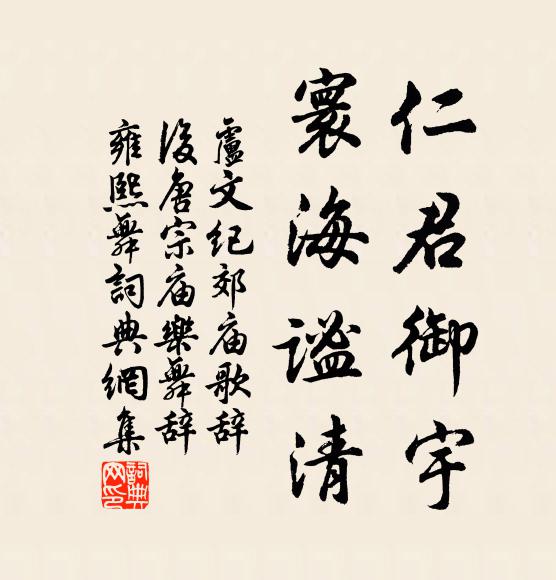 仁君御宇
寰海谧清
盧文纪郊庙歌辞
後唐宗庙樂舞辞
雍熙舞詞典網集
詞典网印